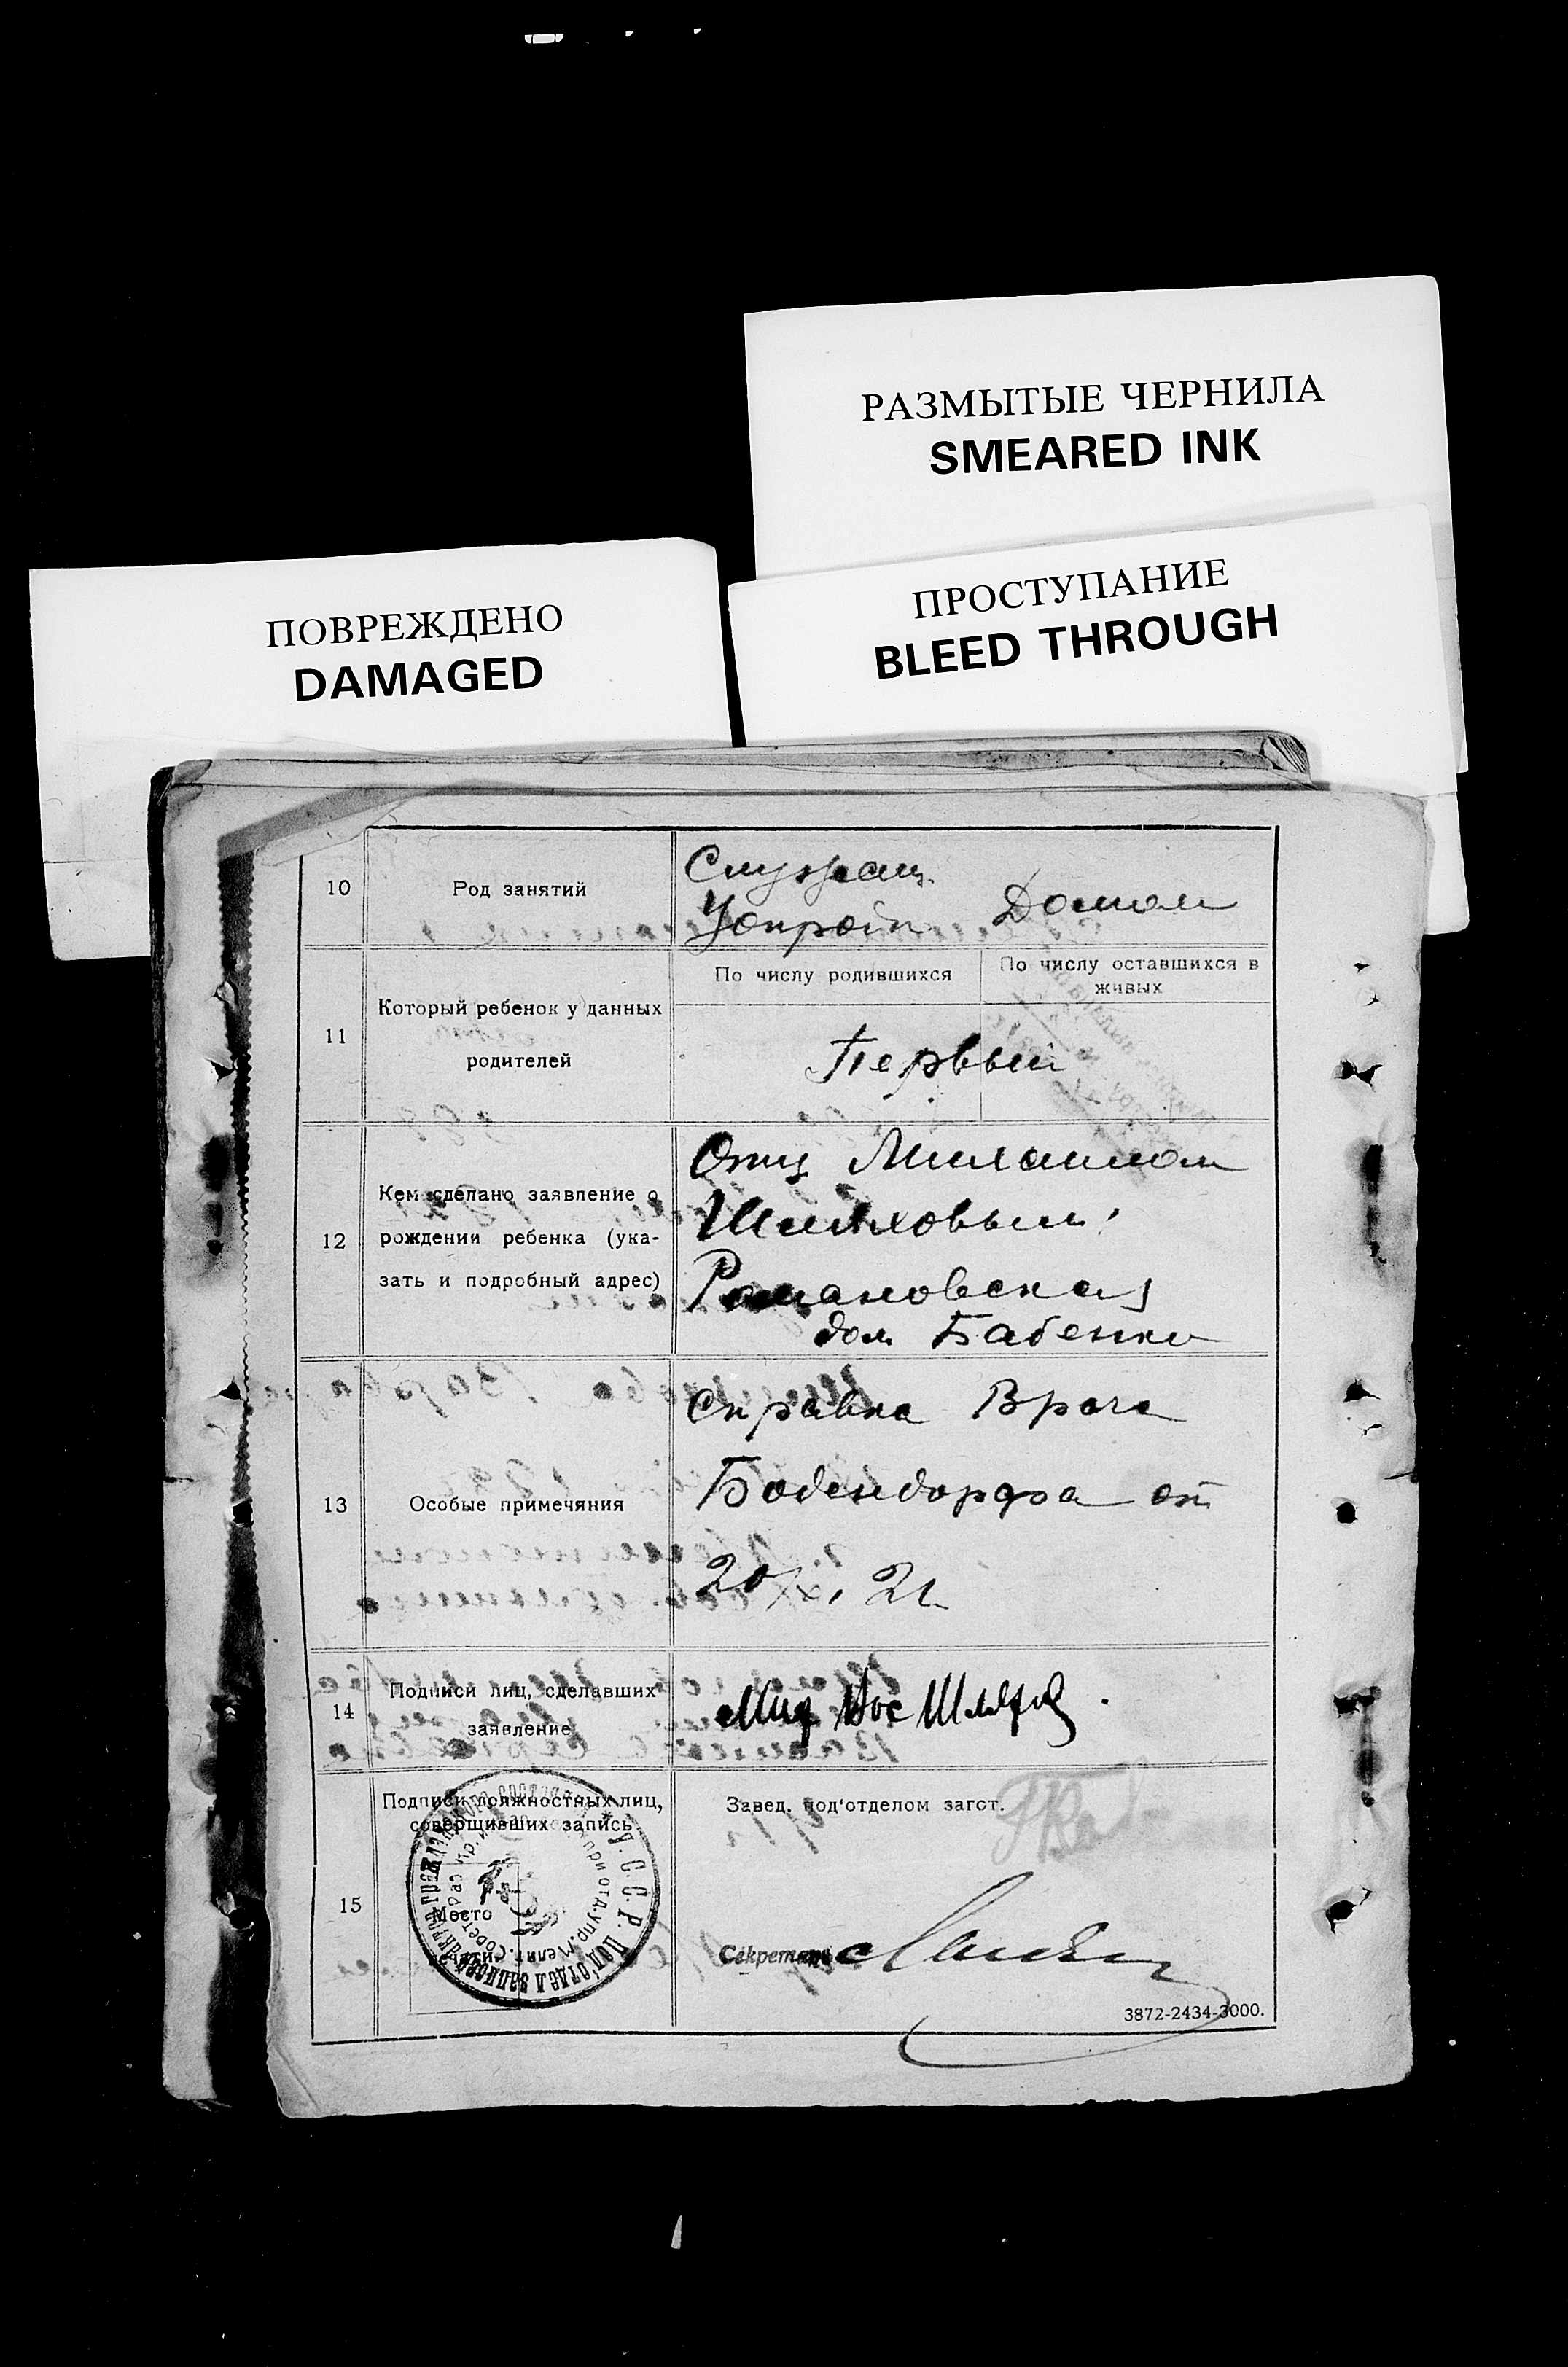 РАЗМЫТЫЕ ЧЕРНИЛА
SMEARED INK
ПРОСТУПАНИЕ
BLEED THROUGH
ПОВРЕЖДЕНО
DAMAGED
10 Род занятий
Служащ.
Домом
11 Который ребенок у данных
родителей
По числу родившихся
По числу оставшихся в
живых
Первый
12 Кем сделано заявление о
рождении ребенка (ука-
зать и подробный адрес)
Отц Михаилом
Шляховым:
Романовская
дом Бабенко
13 Особые примечяния
Справка Врача
Бодендорфа от
20/XI 21
14 Подписи лиц, сделавших
заявление
15 Подписи должностных лиц,
совершивших запись
Место
Завед. под'отделом загст.
Секретарь
3872-2434-3000.